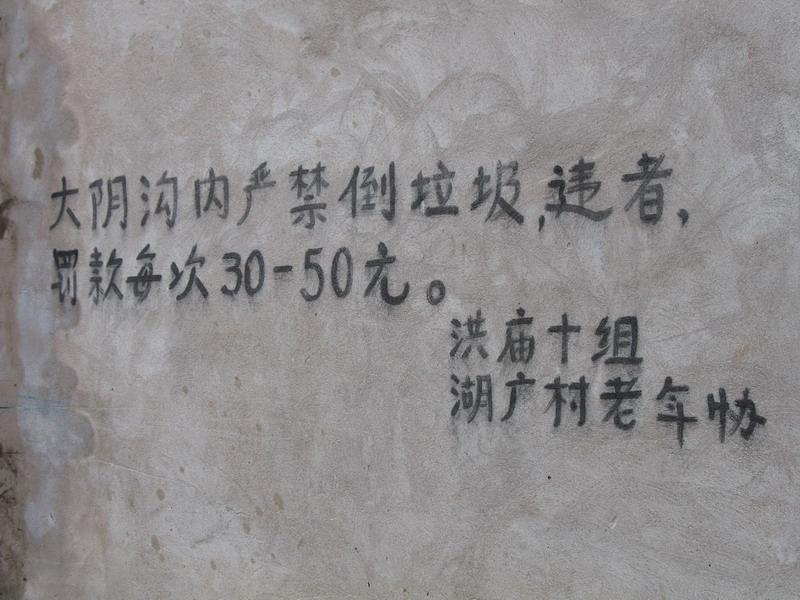 大阴沟内严禁倒垃圾,违者,
罚款每次30-50元。
洪庙十组
湖广村老年协